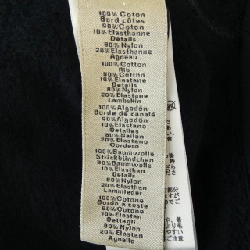 100% Coton
Bord côtes
90% Coton
10% Elasthanne
Details
80% Nylon
20% Elasthanne
Agneau
100% Cotton
Rib
90% Cotton
10% Elastane
Details
80% Nylon
20% Elastane
Lambskin
100% Algodón
Borde de canalé
90% Algodón
10% Elastano
Detalles
80% Nailon
20% Elastano
Cordero
100% Baumwolle
Strickbündchen
90% Baumwolle
10% Elasthan
Details
80% Nylon
20% Elasthan
Lammleder
100% Cotone
Bordo a coste
90% Cotone
10% Elastan
Dettagli
80% Nylon
20% Elastan
Agnello